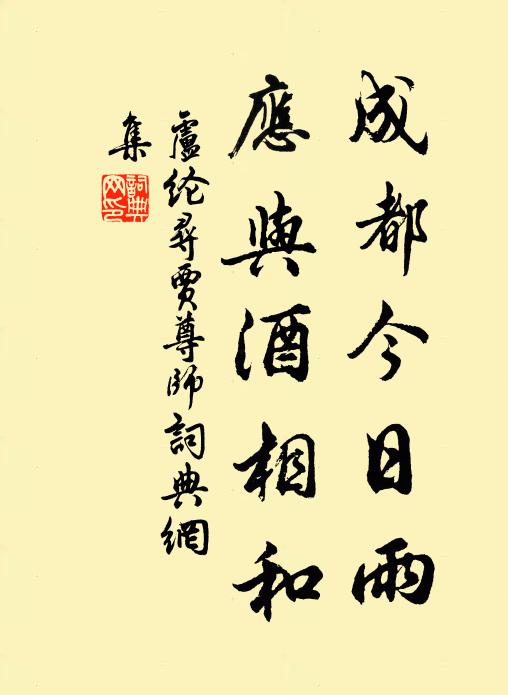 成都今日雨
應與酒相和
盧纶尋賈尊師詞典網
集
詞典
网印